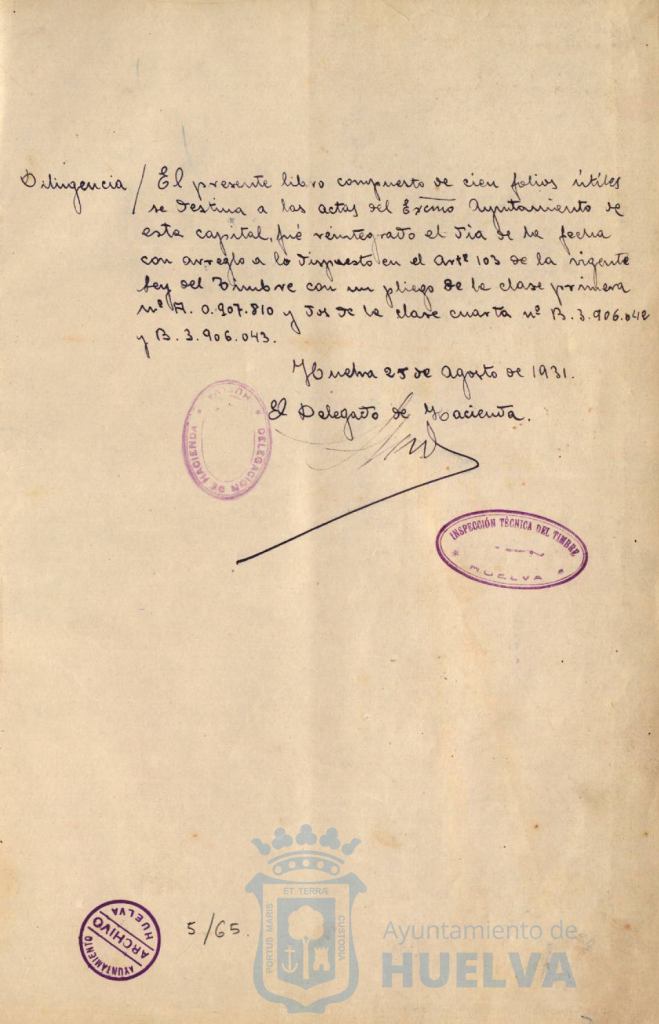 Diligencia / El presente libro compuesto de cien folios útiles
se destina a las actas del Excmo Ayuntamiento de
esta capital, fué reintegrado el dia de la fecha
con arreglo a lo dispuesto en el artº 103 de la vigente
Ley del Timbre con un pliego de la clase primera
nº A. 0.907.810 y dos de la clase cuarta nº B. 3.906.042
y B. 3.906.043.
Huelva 25 de Agosto de 1931.
El Delegado de Hacienda.
DELEGACION DE HACIENDA
INSPECCIÓN TÉCNICA DEL TIMBRE
HUELVA
AYUNTAMIENTO
ARCHIVO
HUELVA
5/65.
PORTUS MARIS
ET TERRÆ
CUSTODIA
Ayuntamiento de
HUELVA